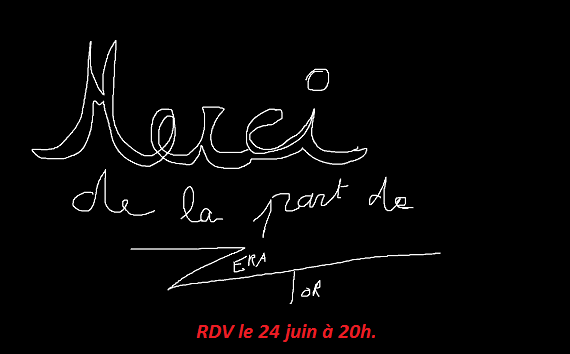 Merci
de la part de
ZERA
TOR
RDV le 24 juin à 20h.